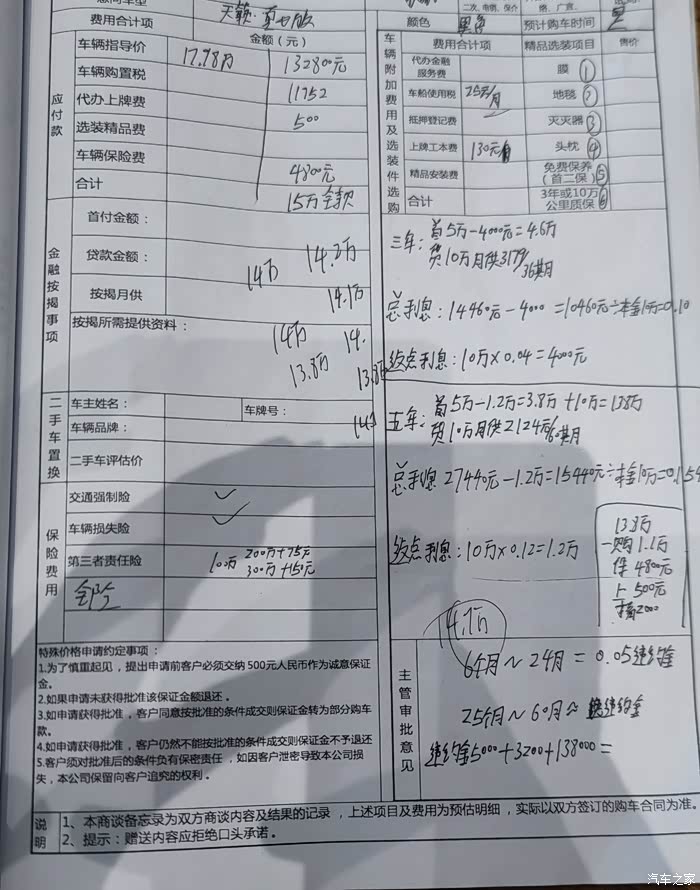 费用合计项
天籁·
颜色
黑
预计购车时间
金额（元）
车辆指导价
17.98万
132800元
车辆购置税
11752
代办上牌费
500
选装精品费
车辆保险费
4800元
合计
15万全款
应付款
车辆附加费用及选装件选购
费用合计项
精品选装项目
售价
代办金融服务费
膜①
车船使用税
25元/月
地毯②
抵押登记费
灭火器③
上牌工本费
130元
头枕④
精品安装费
免费保养（首二保）⑤
合计
3年或10万公里质保⑥
金融按揭事项
首付金额：
贷款金额：
14万
14.2万
按揭月供
14.1万
按揭所需提供资料：
14万
14.
13.8万
13.8
三年：首5万-4000元=4.6万
贷10万月供3179/36期
总利息：14460元-4000=10460元÷本金10万=0.10
返点利息：10万×0.04=4000元
五年：首5万-1.2万=3.8万+10万=13.8万
贷10万月供2124元/60期
总利息27440元-1.2万=15440元÷本金10万=0.154
返点利息：10万×0.12=1.2万
13.8万
一购1.1万
保4800元
上500元
2000
14.7万
二手车置换
车主姓名：
车牌号：
车辆品牌：
二手车评估价
保险费用
交通强制险
✓
车辆损失险
✓
第三者责任险
100万
200万+75元
300万+150元
全险
主管审批意见
6个月~24月=0.05违约金
25个月~60月
违约金
违约金5000+3200+138000=
特殊价格申请约定事项：
1.为了慎重起见，提出申请前客户必须交纳500元人民币作为诚意保证金。
2.如果申请未获得批准该保证金额退还。
3.如申请获得批准，客户同意按批准的条件成交则保证金转为部分购车款。
4.如申请获得批准，客户仍然不能按批准的条件成交则保证金不予退还
5.客户须对批准后的条件负有保密责任，如因客户泄密导致本公司损失，本公司保留向客户追究的权利。
说明
1、本商谈备忘录为双方商谈内容及结果的记录，上述项目及费用为预估明细，实际以双方签订的购车合同为准。
2、提示：赠送内容应拒绝口头承诺。
汽车之家